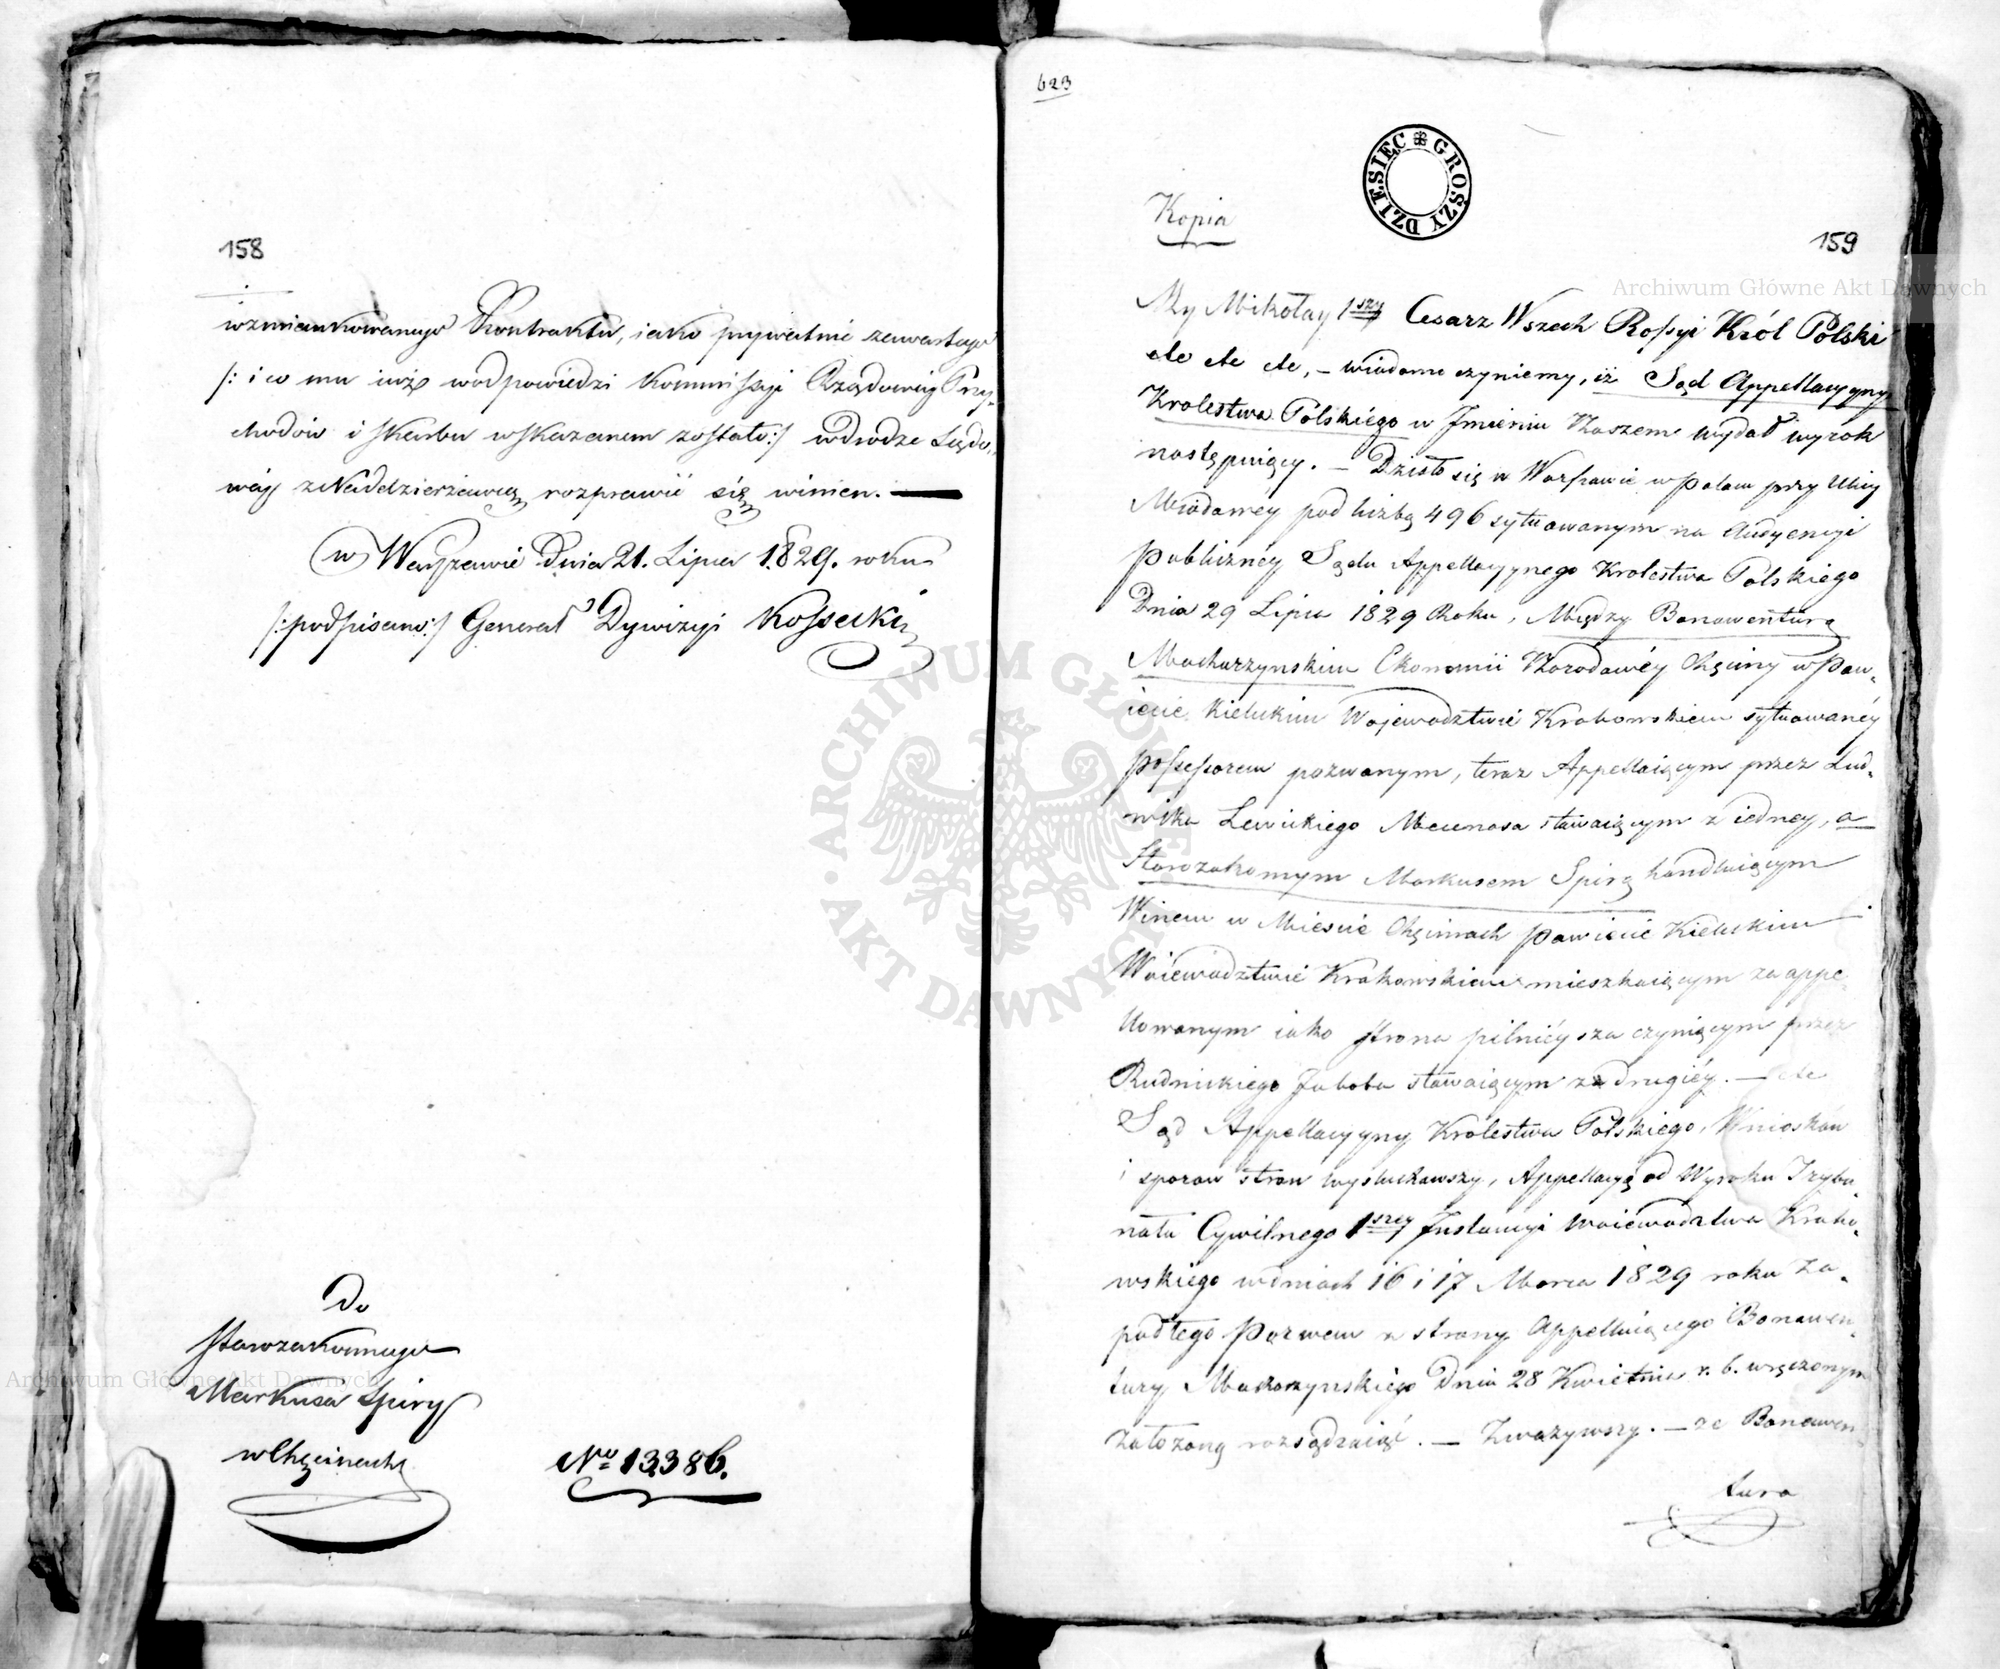 158
wzmiankowanego Kontraktu, iako prywatnie zawartego
/: i co mu iuż w odpowiedzi Kommissyi Rządowéy Przy„
chodów i Skarbu wskazanem zostało :/ w drodze Sądo„
wéy z Naddzierżawcą rozprawić się winien. —
w Warszawie Dnia 21. Lipca 1829. roku
/: podpisano :/ Generał Dywizyi Kossecki
Do
Starozakonnego
Markusa Spiry
w Chęcinach
No 13386.
623
DZIESIEC GROSZY
Kopia
159
My Mikołay 1szy Cesarz Wszech Rossyi Król Polski
etc etc etc, – wiadomo czyniemy, iż Sąd Appellacyyny
Krolestwa Polskiégo w Jmieniu Naszem wydał wyrok
następuiący. – Działo się w Warszawie w Pałacu przy Ulicy
Miodowey pod liczbą 496 sytuowanym na Audyencyi
Publicznéy Sądu Appellacyynego Krolestwa Polskiego
Dnia 29 Lipca 1829 Roku, Między Bonawenturą
Mochorzynskim Ekonomii Narodowéy Chęciny w Pow„
iecie Kieleckim Wojewodztwie Krakowskiem sytuowanéy
Possessorem pozwanym, teraz Appelluiącym przez Lud„
wika Lewickiego Mecenasa stawaiącym z iedney, a
Starozakonnym Markusem Spirą handluiącym
Winem w Miescie Chęcinach Powiecie Kieleckim
Wóiewodztwie Krakowskiem mieszkaiącym za appe„
llowanym iako strona pilniéysza czyniącym przez
Rudnickiego Jakoba stawaiącym z drugiéy. – etc
Sąd Appellacyyny Królestwa Polskiego, Wniosków
i sporow stron wysłuchawszy, Appellacyą od Wyroku Trybu„
nału Cywilnego 1szey Jnstancyi Woiewodztwa Krako„
wskiego w dniach 16 i 17 Marca 1829 roku za„
padłego Pozwem z strony Appelluiącego Bonawen„
tury Mochorzynskiégo Dnia 28 Kwietnia r. b. wręczonym
założoną rozsądzaiąc. – Zważywszy. – że Bonawen„
tura
Archiwum Główne Akt Dawnych
Archiwum Główne Akt Dawnych
ARCHIWUM GŁÓWNE
AKT DAWNYCH